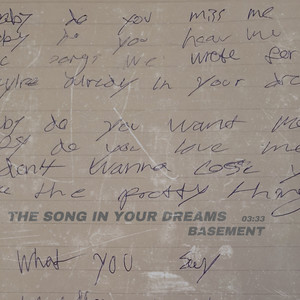 baby do you miss me
baby do you hear me
songs we wrote for
already in your dre
baby do you want me
do you love me
dont wanna
the pretty thing
THE SONG IN YOUR DREAMS 03:33
BASEMENT
What you say